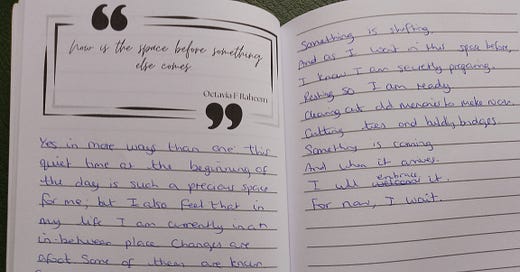 Now is the space before something
else comes
Octavia F Raheem
Yes in more ways than one this
quiet time at the beginning of
the day is such a precious space
for me, but I also feel that in
my life I am currently in an
in-between place. Changes are
afoot. Some of them are known
Something is shifting.
And as I wait in this space before,
I know I am secretly preparing.
Resting so I am ready
Clearing out old memories to make room.
Cutting ties and building bridges.
Something is coming
And when it arrives.
I will embrace it.
For now, I wait.